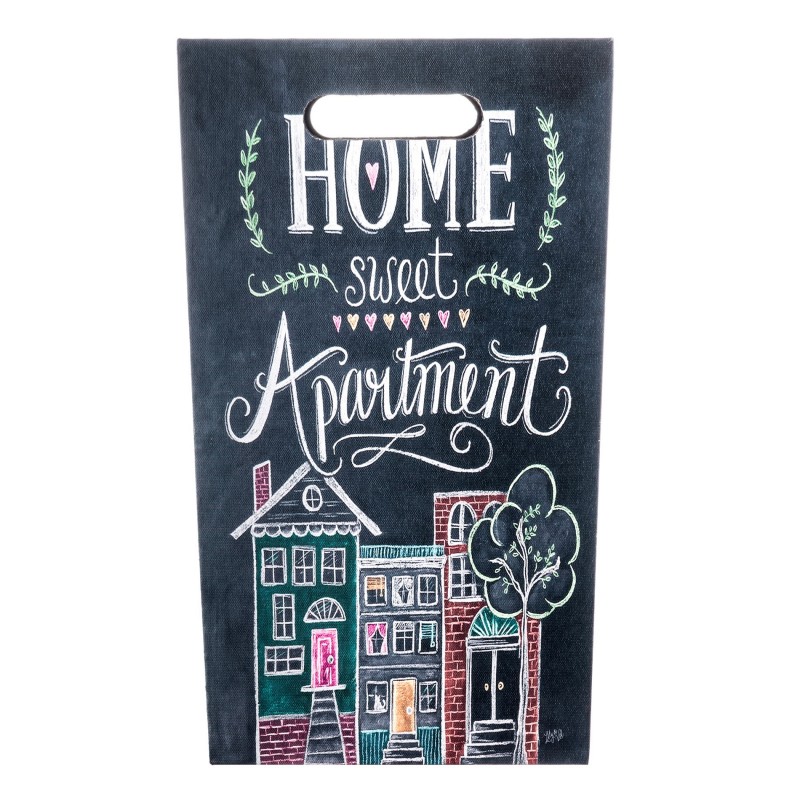 HOME
sweet
Apartment